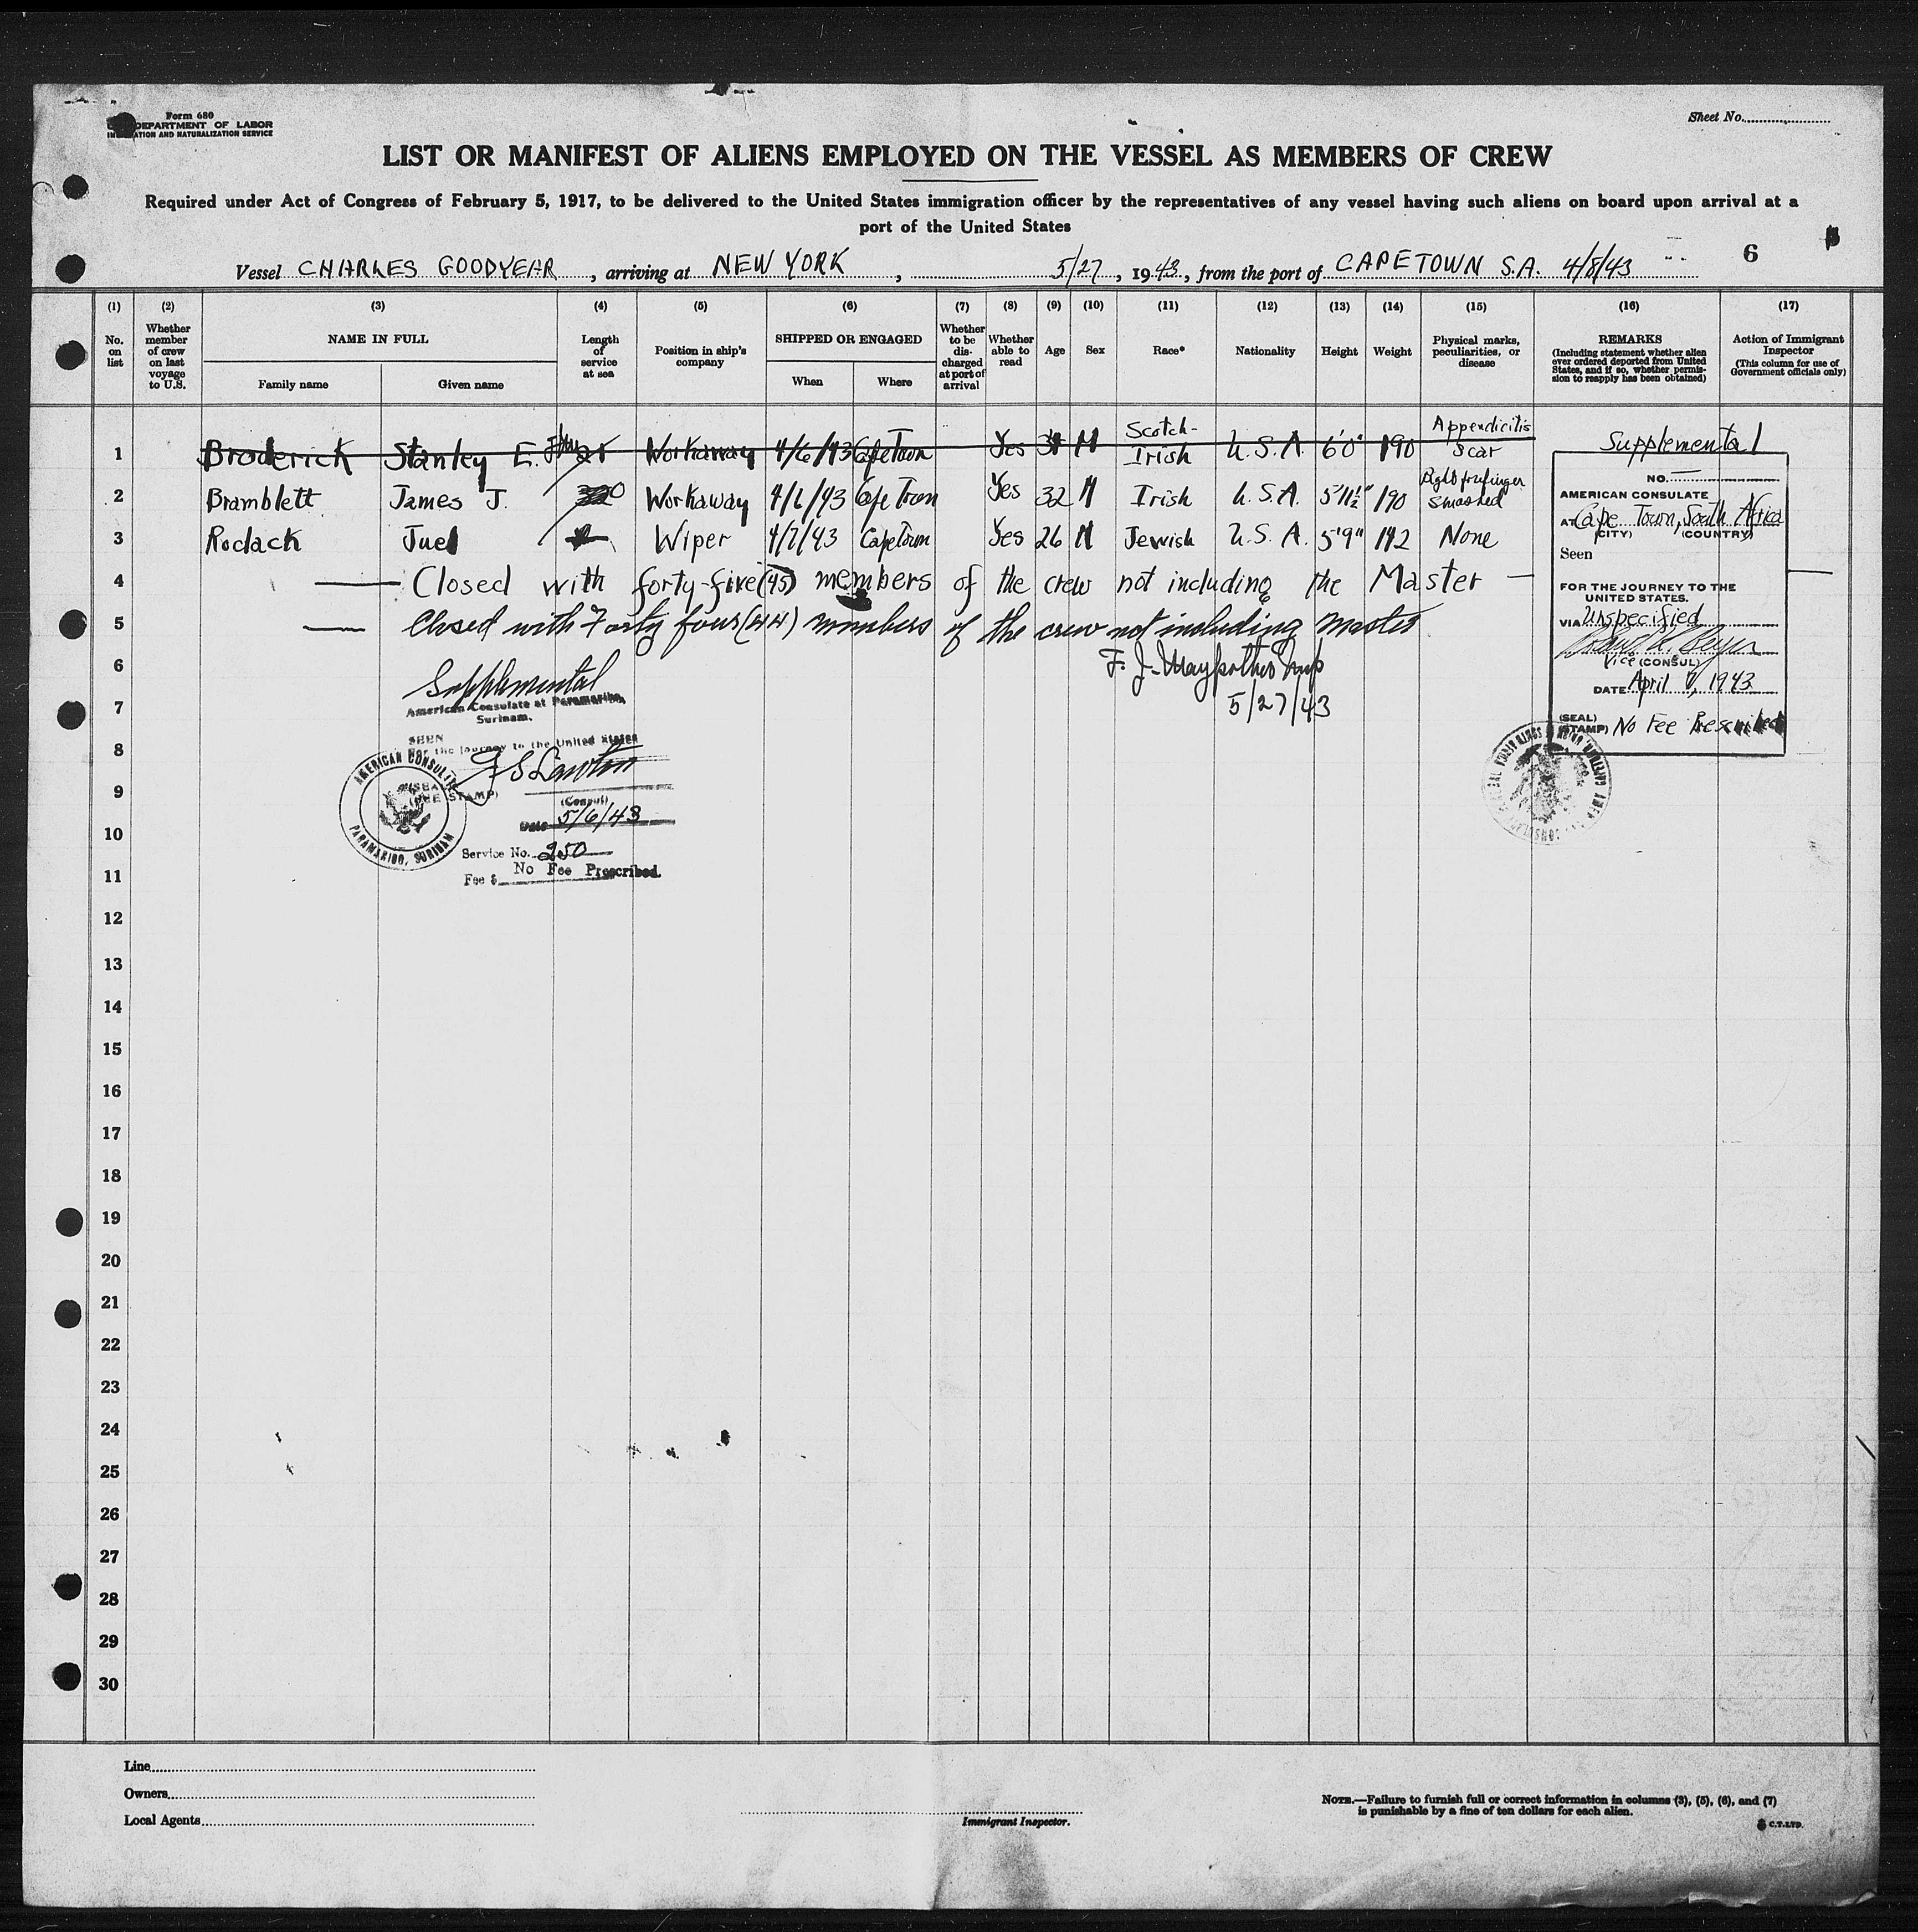 Form 680
DEPARTMENT OF LABOR
IMMIGRATION AND NATURALIZATION SERVICE
Sheet No.
LIST OR MANIFEST OF ALIENS EMPLOYED ON THE VESSEL AS MEMBERS OF CREW
Required under Act of Congress of February 5, 1917, to be delivered to the United States immigration officer by the representatives of any vessel having such aliens on board upon arrival at a
port of the United States
6
Vessel CHARLES GOODYEAR, arriving at NEW YORK, 5/27, 1943, from the port of CAPETOWN S.A. 4/8/43
(1) (2) (3) (4) (5) (6) (7) (8) (9) (10) (11) (12) (13) (14) (15) (16) (17)
No. on list
Whether member of crew on last voyage to U.S.
NAME IN FULL
Family name
Given name
Length of service at sea
Position in ship's company
SHIPPED OR ENGAGED
When
Where
Whether to be discharged at port of arrival
Whether able to read
Age
Sex
Race*
Nationality
Height
Weight
Physical marks, peculiarities, or disease
REMARKS
(Including statement whether alien ever ordered deported from United States, and if so, whether permission to reapply has been obtained)
Action of Immigrant Inspector
(This column for use of Government officials only)
1 Broderick Stanley E. Workaway 4/6/43 CapeTown Yes M Scotch-Irish U.S.A. 6'0" 190 Appendicitis Scar
2 Bramblett James J. Workaway 4/6/43 Cape Town Yes 32 M Irish U.S.A. 5'11½" 190 Right forefinger smashed
3 Rodack Juel Wiper 4/7/43 CapeTown Yes 26 M Jewish U.S.A. 5'9" 142 None
4 Closed with forty-five (45) members of the crew not including the Master
5 Closed with Forty four (44) members of the crew not including Master
6
7
8
9
10
11
12
13
14
15
16
17
18
19
20
21
22
23
24
25
26
27
28
29
30
5/27/43
Supplemental
American Consulate at Paramaribo,
Surinam.
SEEN
For the journey to the United States
(SEAL)
(FEE STAMP)
(Consul)
Date 5/6/43
Service No. 250
Fee $ No Fee Prescribed.
AMERICAN CONSULATE
PARAMARIBO, SURINAM
Supplemental
NO.
AMERICAN CONSULATE
AT Cape Town, South Africa
(CITY) (COUNTRY)
Seen
FOR THE JOURNEY TO THE
UNITED STATES.
VIA Unspecified
Vice (CONSUL)
DATE April 7, 1943
(SEAL)
(STAMP) No Fee Prescribed
Line
Owners
Local Agents
Immigrant Inspector.
NOTE.—Failure to furnish full or correct information in columns (3), (5), (6), and (7)
is punishable by a fine of ten dollars for each alien.
C.T.LTD.